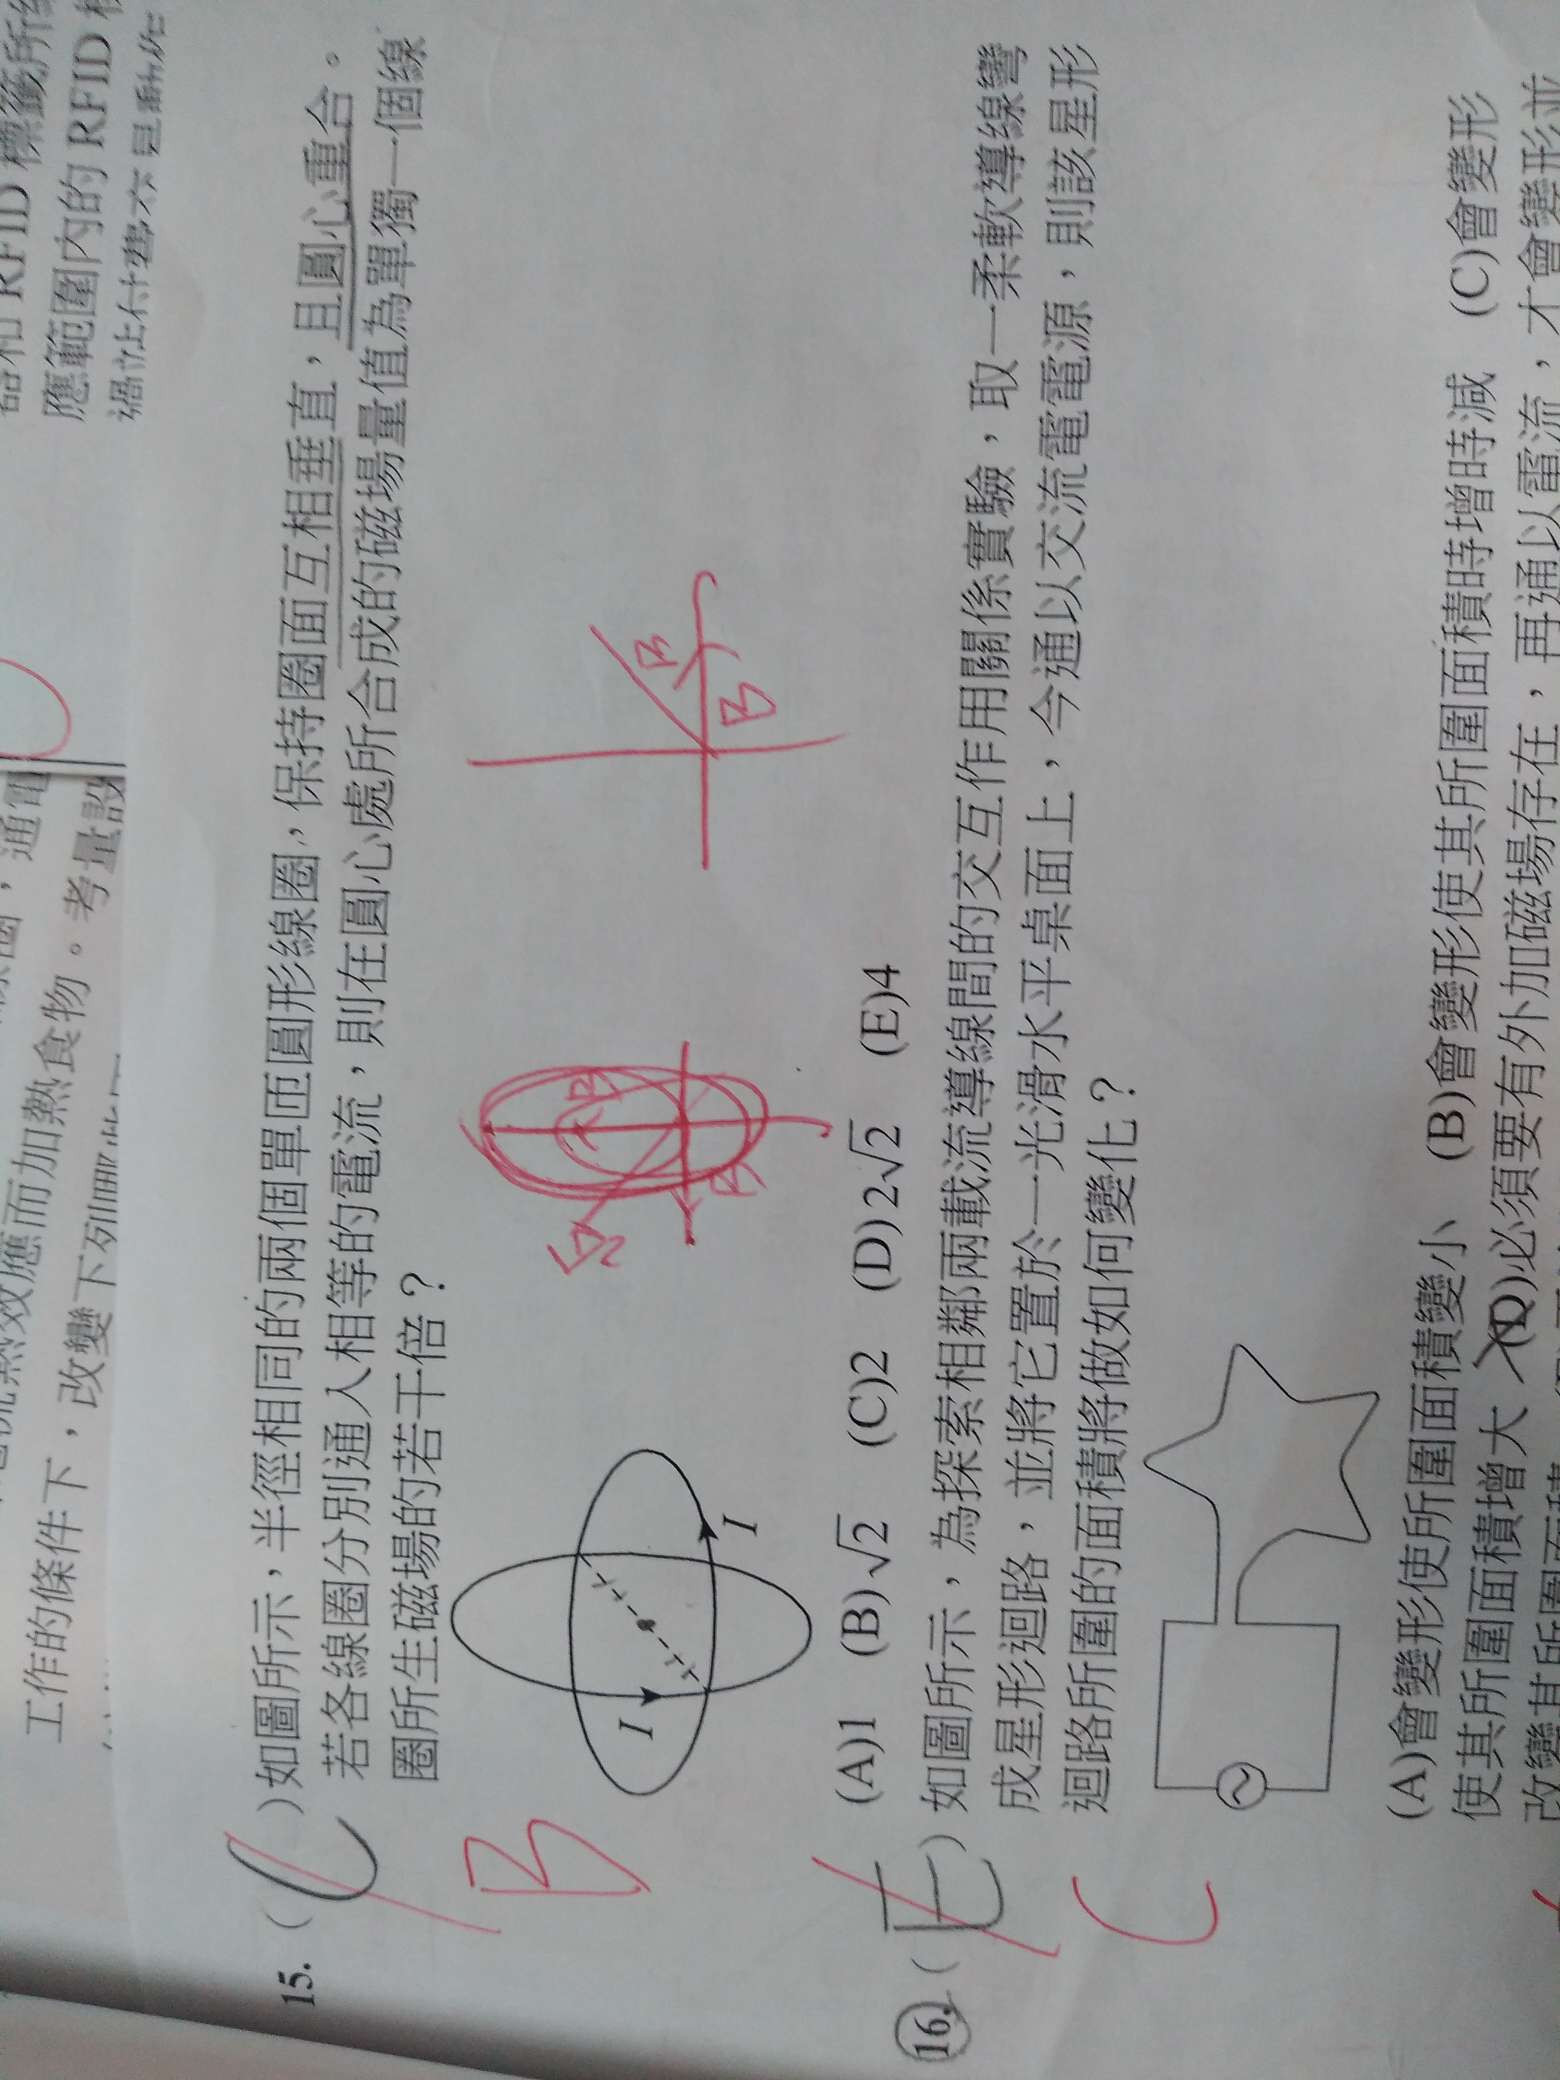 器和 RFID 標籤所
應範圍內的 RFID
，通電
電流熱效應而加熱食物。考量設
工作的條件下，改變下列哪
15. ( C )如圖所示，半徑相同的兩個單匝圓形線圈，保持圈面互相垂直，且圓心重合。
若各線圈分別通入相等的電流，則在圓心處所合成的磁場量值為單獨一個線
圈所生磁場的若干倍？
B
I
I
B
B
√2
B
B
(A)1 (B)√2 (C)2 (D)2√2 (E)4
16. ( E )如圖所示，為探索相鄰兩載流導線間的交互作用關係實驗，取一柔軟導線彎
成星形迴路，並將它置於一光滑水平桌面上，今通以交流電電源，則該星形
迴路所圍的面積將做如何變化？
C
(A)會變形使所圍面積變小 (B)會變形使其所圍面積時增時減 (C)會變形
使其所圍面積增大 (D)必須要有外加磁場存在，再通以電流，才會變形並
改變其所圍面積